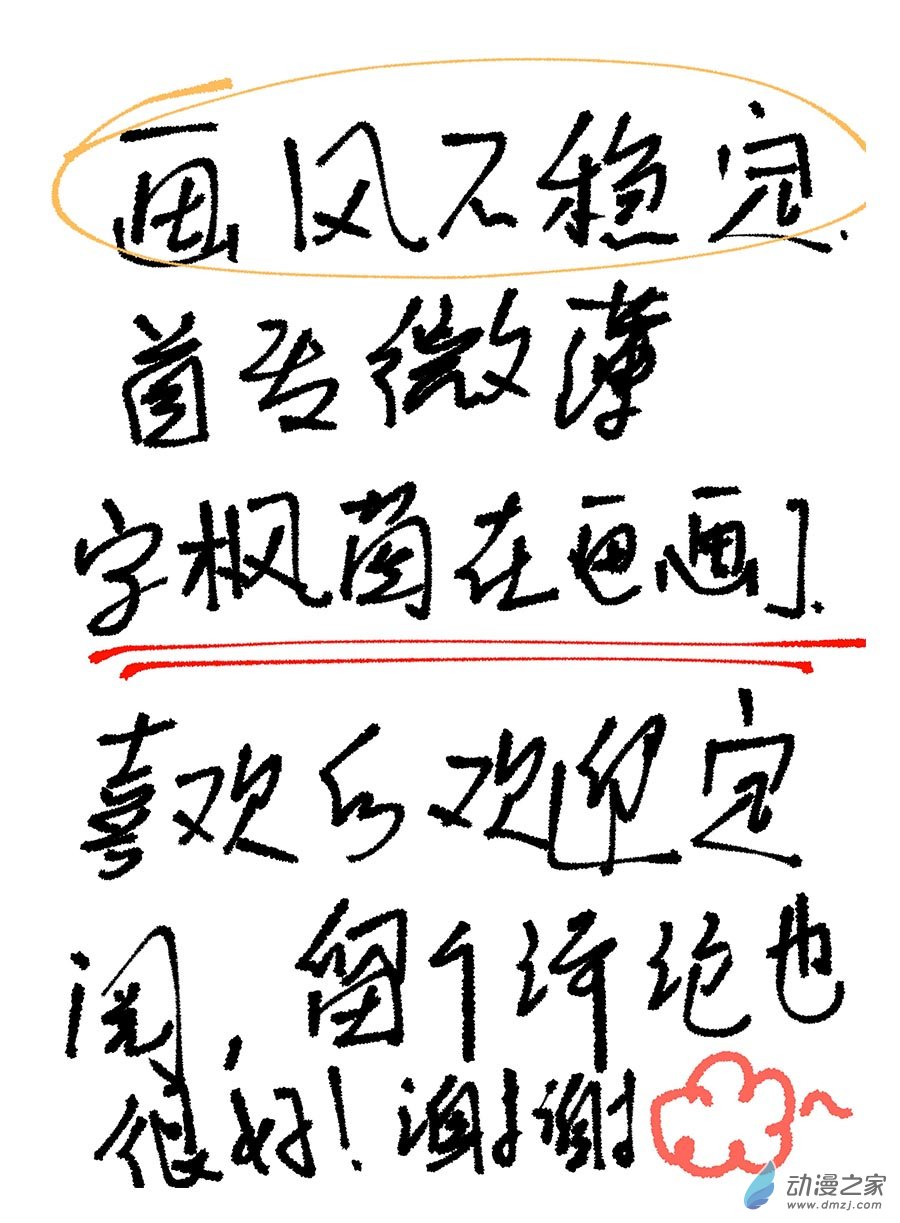 画风不稳定.
首发微薄
字枫茵在画画].
喜欢的欢迎定
阅，留个评论也
很好！谢谢
动漫之家
www.dmzj.com